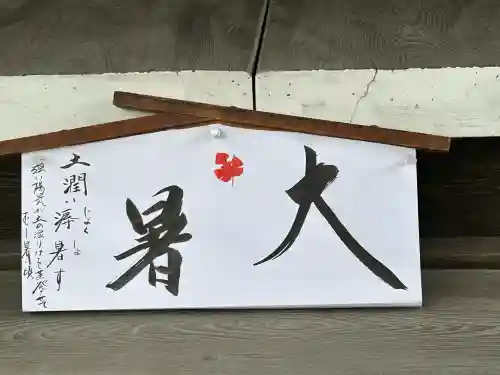 大暑
土潤い溽暑す
じょく しょ
強い陽気が土の湿りけを蒸発させ
むし暑い頃